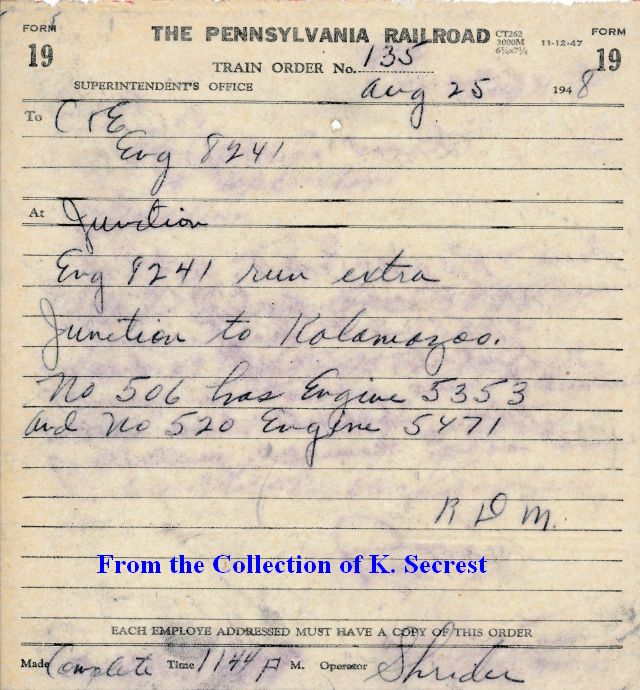 FORM 19 THE PENNSYLVANIA RAILROAD CT262 3000M 6¾x7¼ 11-12-47 FORM 19
TRAIN ORDER No. 135
SUPERINTENDENT'S OFFICE Aug 25 1948
To C & E
Eng 8241
At Junction
Eng 8241 run extra
Junction to Kalamazoo.
No 506 has Engine 5353
and No 520 Engine 5471
R D M.
From the Collection of K. Secrest
EACH EMPLOYE ADDRESSED MUST HAVE A COPY OF THIS ORDER
Made Complete Time 1144 A M. Operator Shrider